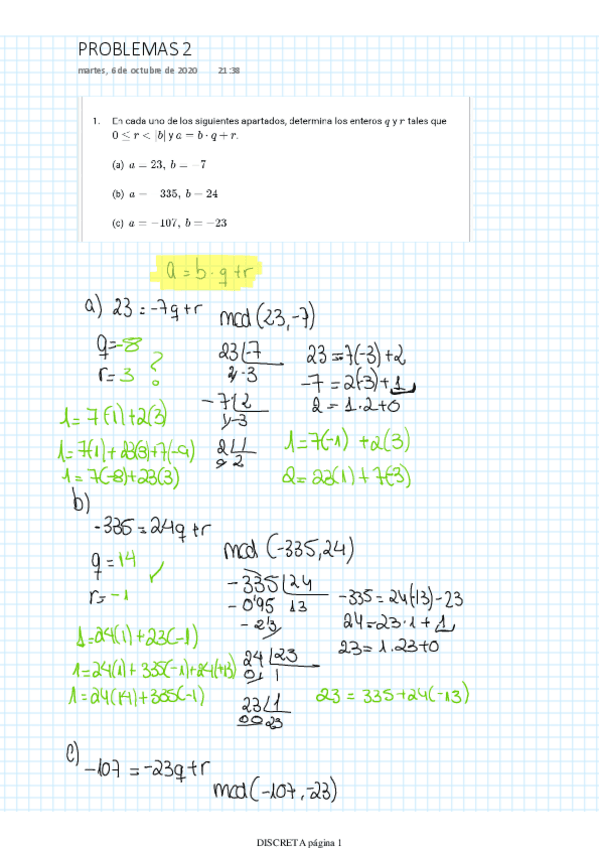 PROBLEMAS 2
martes, 6 de octubre de 2020 21:38
1. En cada uno de los siguientes apartados, determina los enteros q y r tales que
0 ≤ r < |b| y a = b · q + r.
(a) a = 23, b = −7
(b) a = 335, b = 24
(c) a = −107, b = −23
a = b · q + r
a) 23 = -7q + r
mcd (23, -7)
q = -8
r = 3 ?
23 | -7
2 -3
-7 | 2
1 -3
2 | 1
0 2
23 = 7(-3) + 2
-7 = 2(-3) + 1
2 = 1·2 + 0
1 = 7(1) + 2(3)
1 = 7(1) + 23(3) + 7(-9)
1 = 7(-8) + 23(3)
1 = 7(-1) + 2(3)
2 = 23(1) + 7(-3)
b)
-335 = 24q + r
mcd (-335, 24)
q = 14 ✓
r = -1
-335 | 24
-095 13
-23
-335 = 24(-13) - 23
24 = 23·1 + 1
23 = 1·23 + 0
1 = 24(1) + 23(-1)
1 = 24(1) + 335(-1) + 24(+13)
1 = 24(14) + 335(-1)
24 | 23
01 1
23 | 1
00 23
23 = 335 + 24(-13)
c)
-107 = -23q + r
mcd (-107, -23)
DISCRETA página 1